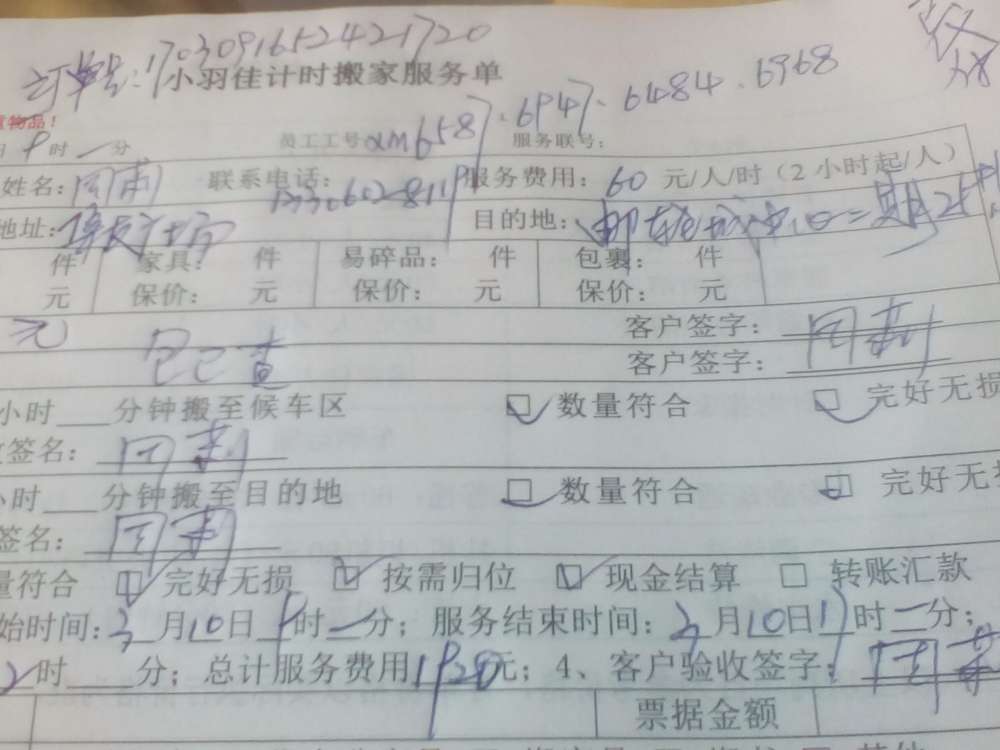 订单号:1703091652421720
小羽佳计时搬家服务单
重物品!
日 9时 一 分 员工工号XM6587.6947.6484.6968 服务联号:
姓名: 联系电话: 服务费用: 60 元/人/时(2小时起/人)
地址: 目的地: 邮轮城 二期
件 家具: 件 易碎品: 件 包裹: 件
元 保价: 元 保价: 元 保价: 元
元 客户签字:
客户签字:
小时 分钟搬至候车区 数量符合 完好无损
签名:
小时 分钟搬至目的地 数量符合 完好无损
签名:
量符合 完好无损 按需归位 现金结算 转账汇款
始时间: 3 月 10 日 9 时 一 分; 服务结束时间: 3 月 10 日 17 时 一 分;
时 分; 总计服务费用 1920 元; 4、客户验收签字:
票据金额